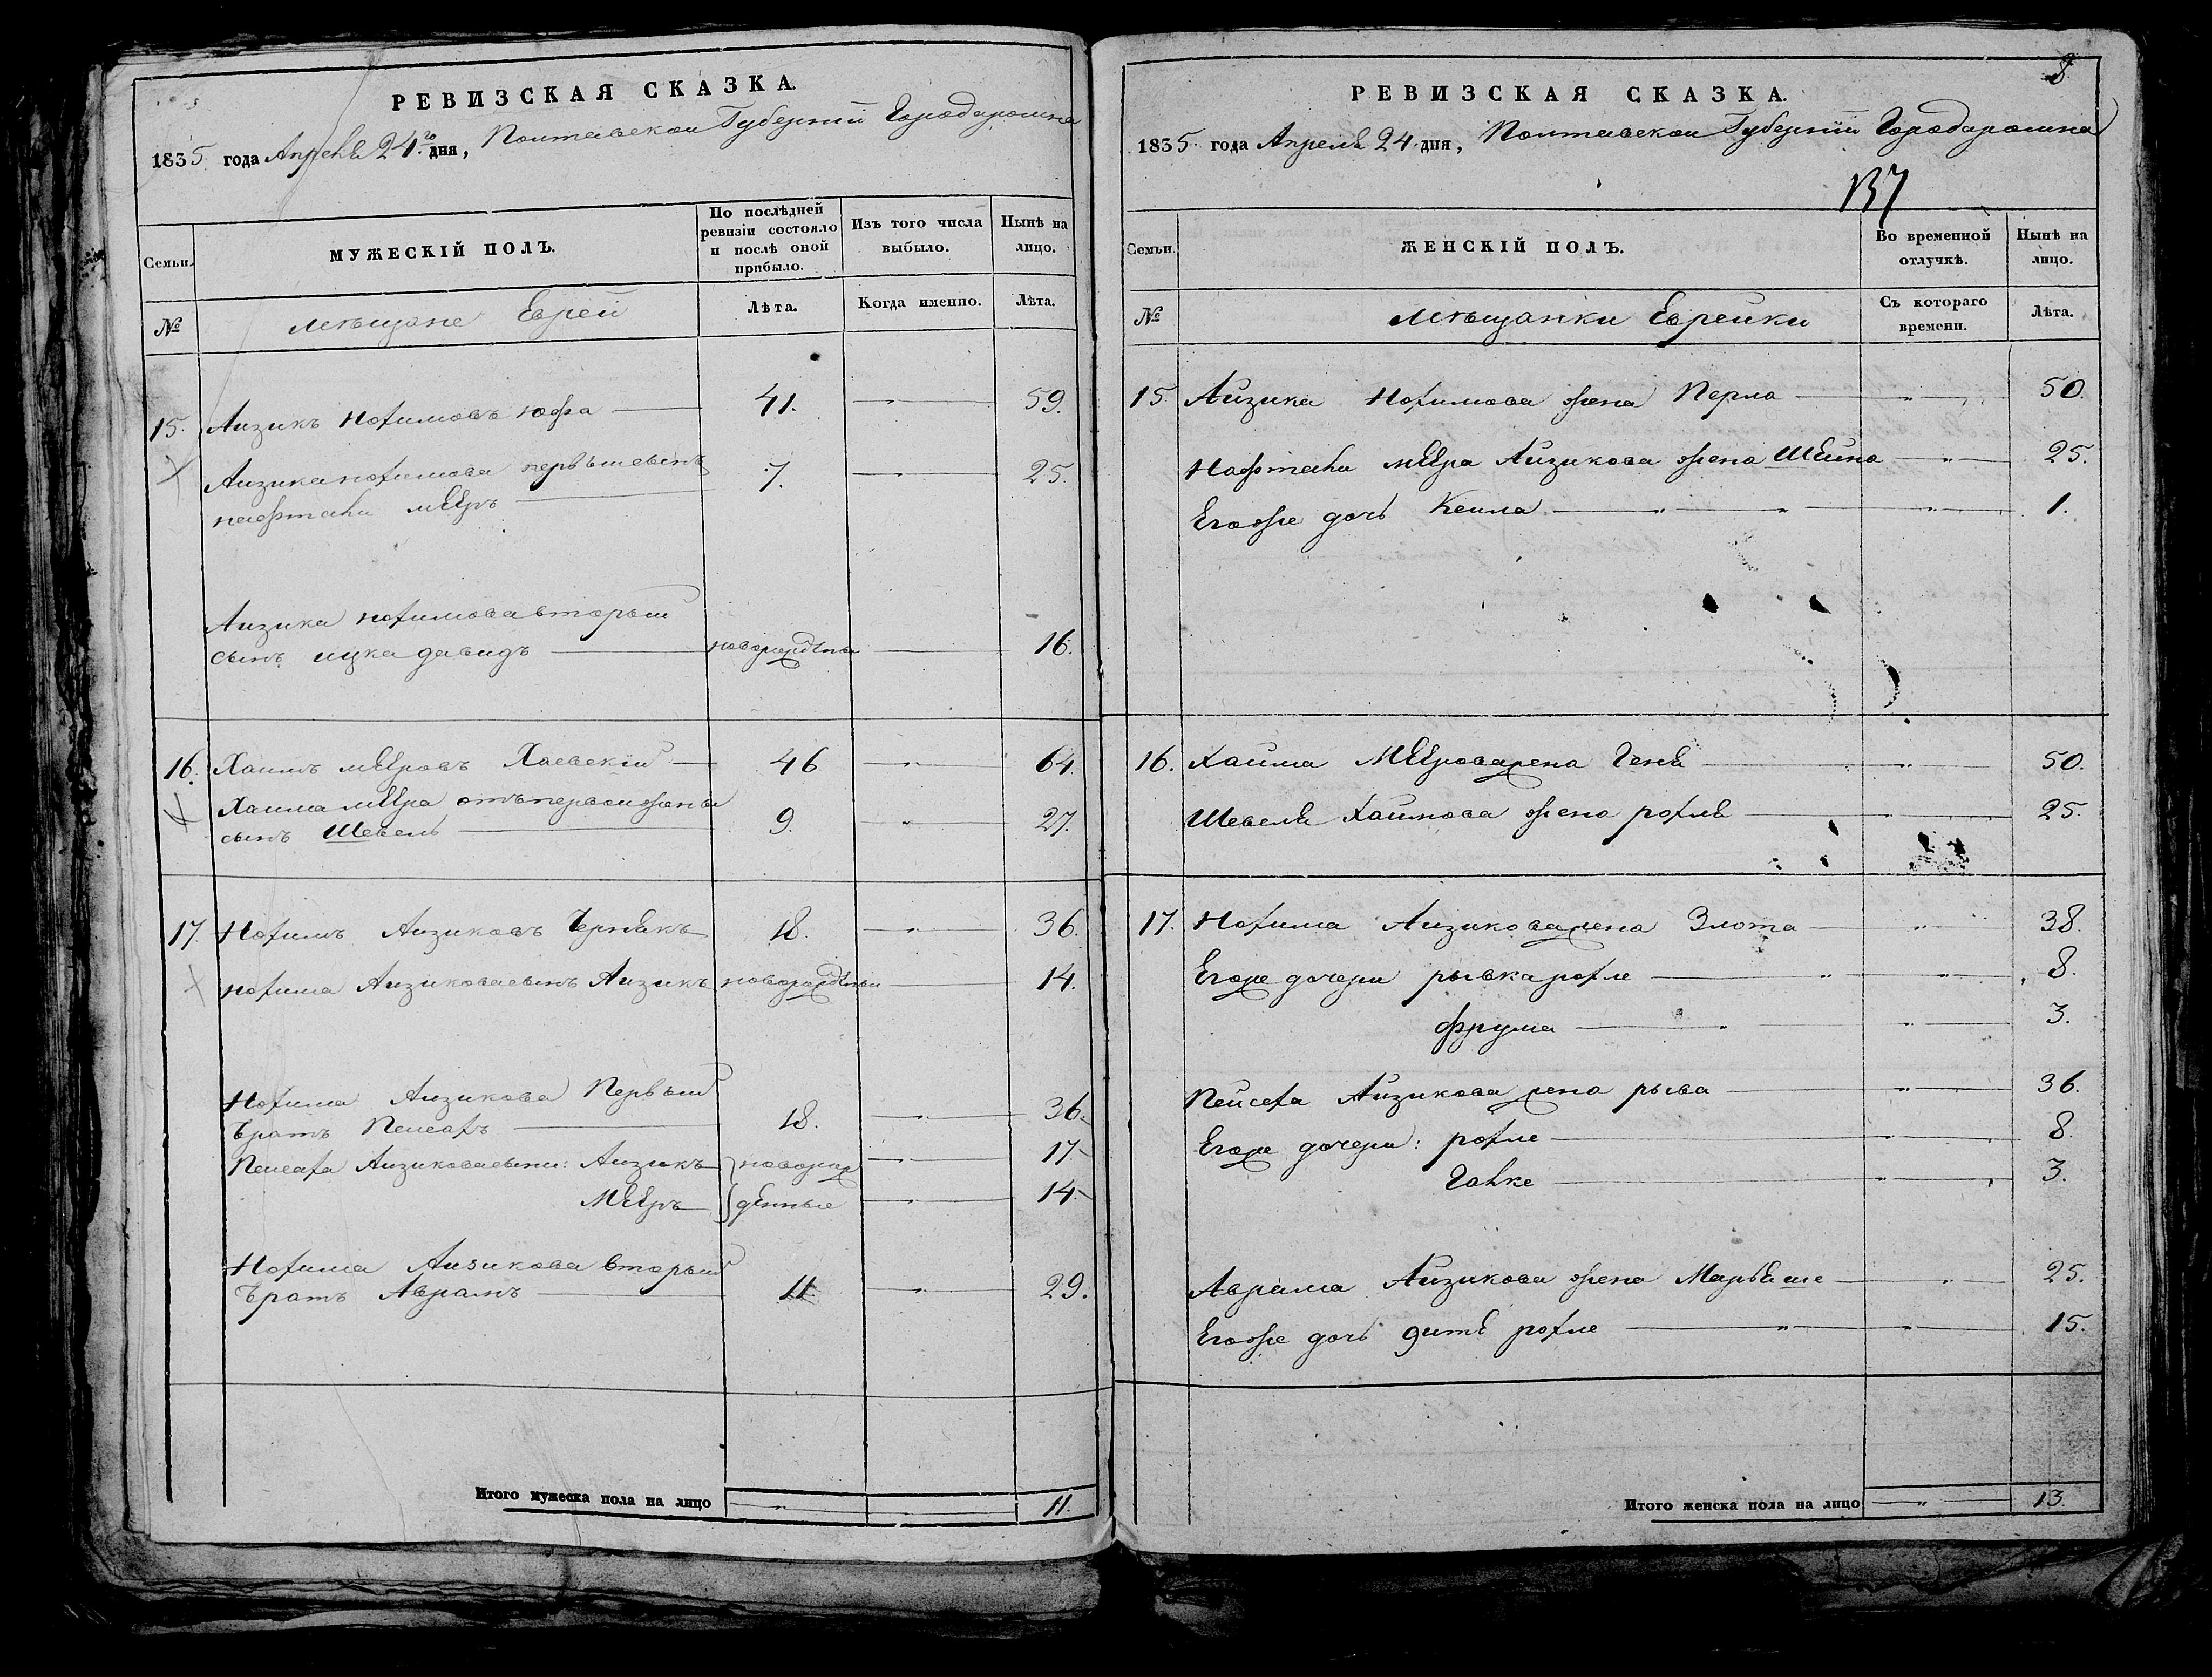 РЕВИЗСКАЯ СКАЗКА.
1835 года Апреля 24го дня, Полтавской Губернии Города Ромна
Семьи.
МУЖЕСКІЙ ПОЛЪ.
По послѣдней ревизіи состояло и послѣ оной прибыло.
Изъ того числа выбыло.
Нынѣ на лицо.
№
мѣщане Евреи
Лѣта.
Когда именно.
Лѣта.
15. Аизикъ Нохимовъ 41. — " — 59.
Аизика нохимова первыи сынъ
нафтали мееръ 7. — " — 25.
Аизика нохимова вторыи
сынъ ицка давидъ новорожденъ — " — 16.
16. Хаимъ мееровъ Хаевскіи 46 — " — 64.
Хаима меера отъ первои жены
сынъ Шевель 9. — " — 27.
17. Нохимъ Аизиковъ Чернякъ 18. — " — 36.
нохима Аизикова сынъ Аизикъ новорожденыи — " — 14.
Нохима Аизикова Первыи
братъ Пейсахъ 18. — " — 36.
Пейсаха Аизикова сыны: Аизикъ новорож — " — 17.
Мееръ денные — " — 14.
Нохима Аизикова вторыи
братъ Аврамъ 11 — " — 29.
Итого мужеска пола на лицо — " — 11.
8
РЕВИЗСКАЯ СКАЗКА.
1835 года Апреля 24 дня, Полтавской Губерніи Города Ромна
137
Семьи.
ЖЕНСКІЙ ПОЛЪ.
Во временной отлучкѣ.
Нынѣ на лицо.
№
мѣщанки Еврейки
Съ котораго времени.
Лѣта.
15. Айзика Нохимова жена Перла — " — 50.
Нафтали меера Айзикова жена Шейна — " — 25.
Егоже дочь Кейла — " — 1.
16. Хаима Меерова жена Геня — " — 50.
Шевеля Хаимова жена рохля — " — 25.
17. Нохима Аизикова жена Злота — " — 38.
Егоже дочери рывка рохле — " — 8.
фрума — " — 3.
Пейсаха Айзикова жена рыва — " — 36.
Егоже дочери: рохле — " — 8.
Галке — " — 3.
Аврама Айзикова жена Марьяше — " — 25.
Егоже дочь дитя рохле — " — 15.
Итого женска пола на лицо — " — 13.